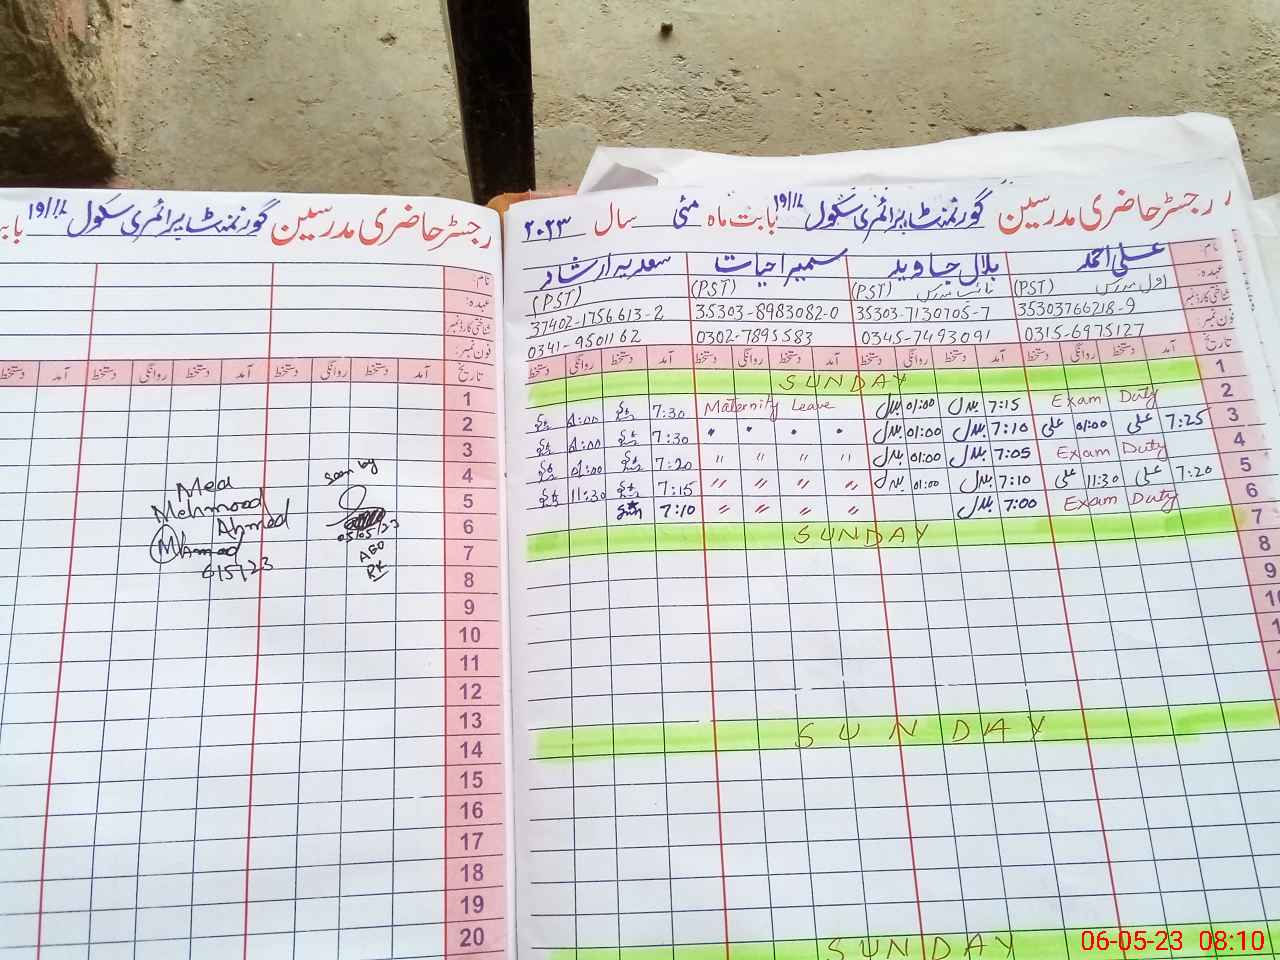 رجسٹر حاضری مدرسین گورنمنٹ پرائمری سکول ۱۹/۱۱ با
نام:
عہدہ:
شناختی کارڈ نمبر
فون نمبر:
تاریخ آمد دستخط روانگی دستخط آمد دستخط روانگی دستخط آمد دستخط
1
2
3
4
5
6
7
8
9
10
11
12
13
14
15
16
17
18
19
20
Mea
Mehmood
Ahmad
MAhmad
6/5/23
Seen by
05/05/23
AEO
رجسٹر حاضری مدرسین گورنمنٹ پرائمری سکول ۱۹/۱۱ بابت ماہ مئی سال ۲۰۲۳
نام علی احمد بلال جاوید سمیرا حیات سعدیہ ارشاد
عہدہ اول مدرس (PST) نائب مدرس (PST) (PST) (PST)
شناختی کارڈ نمبر 35303766218-9 35303-7130705-7 35303-8983082-0 37402-1756613-2
فون نمبر 0315-6975127 0345-7493091 0302-7895583 0341-9501162
تاریخ آمد دستخط روانگی دستخط آمد دستخط روانگی دستخط آمد دستخط روانگی دستخط آمد دستخط روانگی دستخط
1 SUNDAY
2 Exam Duty 7:15 بلال 01:00 بلال Maternity Leave 7:30 01:00
3 7:25 علی 01:00 علی 7:10 بلال 01:00 بلال " " " " 7:30 01:00
4 Exam Duty 7:05 بلال 01:00 بلال " " " " 7:20 01:00
5 7:20 علی 11:30 علی 7:10 بلال 01:00 بلال " " " " 7:15 11:30
6 Exam Duty 7:00 بلال " " " " 7:10
7 SUNDAY
8
9
10
SUNDAY
SUNDAY
06-05-23 08:10